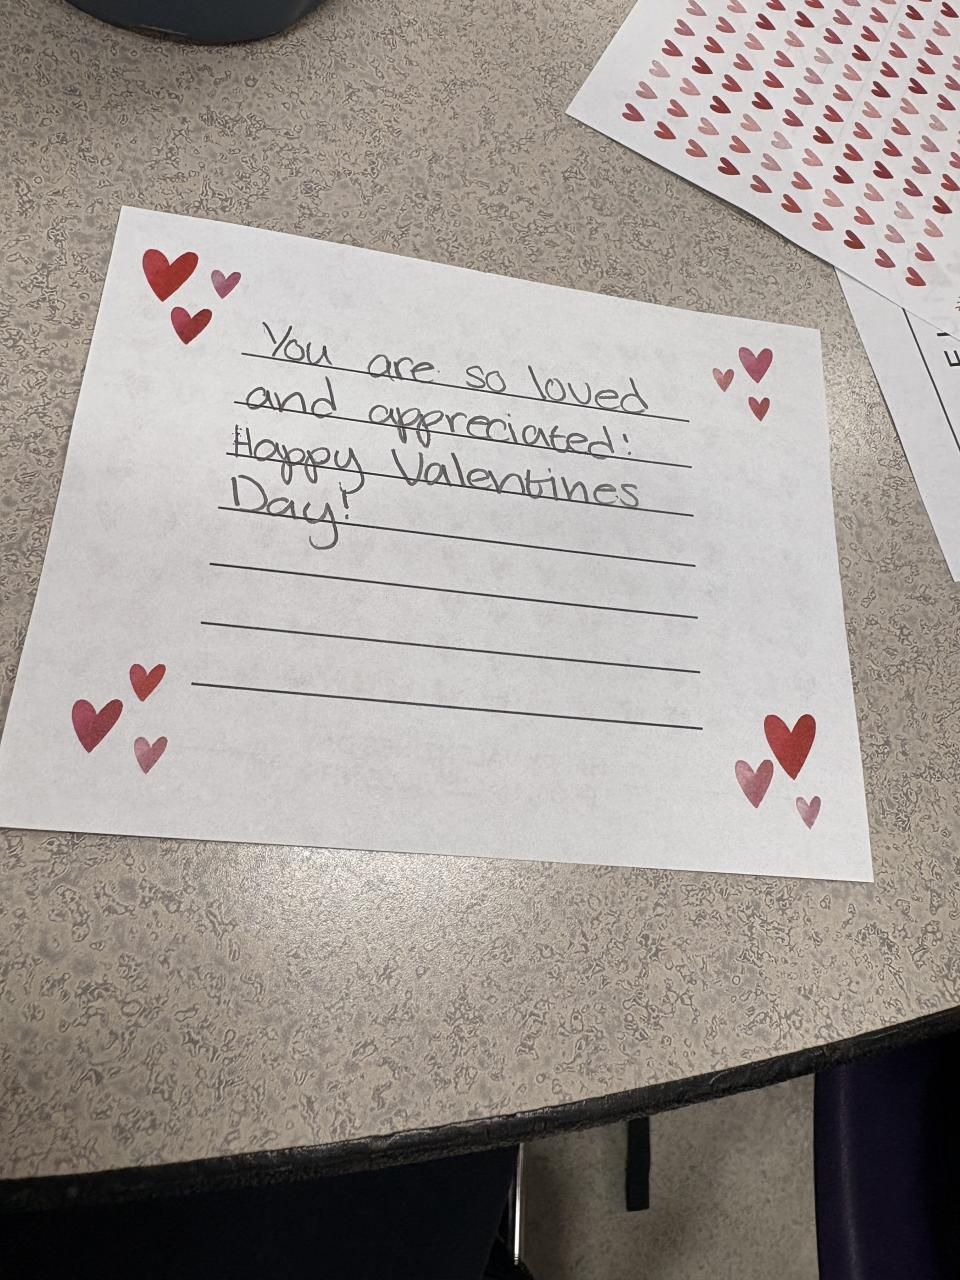 You are so loved
and appreciated!
Happy Valentines
Day!